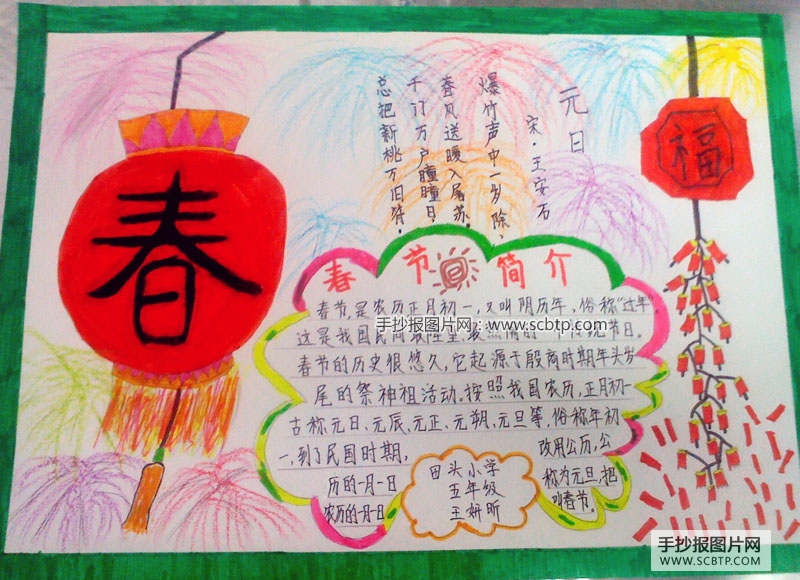 春
福
元日
宋·王安石
爆竹声中一岁除,
春风送暖入屠苏。
千门万户瞳瞳日,
总把新桃万旧符。
春节简介
春节是农历正月初一,又叫阴历年,俗称"过年"。
手抄报图片网:www.scbtp.com
这是我国民间最隆重,最热情的一个传统节日。
春节的历史很悠久,它起源于殷商时期年头岁
尾的祭神祖活动,按照我国农历,正月初一
古称元日、元辰、元正、元朔、元旦等,俗称年初
一,到了民国时期, 改用公历,公
历的一月一日 称为元旦,把
农历的一月一日 叫春节。
田头小学
五年级
王妍昕
手抄报图片网
WWW.SCBTP.COM